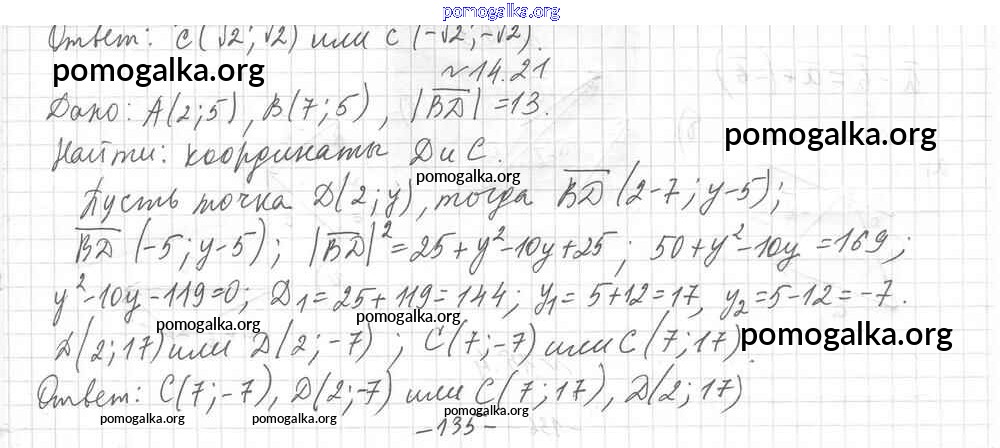 pomogalka.org
Ответ: C(√2; √2) или C(-√2; -√2).
pomogalka.org
№14.21
Дано: A(2;5), B(7;5), |BD|=13.
pomogalka.org
Найти: координаты D и C.
pomogalka.org
Пусть точка D(2;y), тогда BD(2-7; y-5);
BD(-5; y-5); |BD|²=25+y²-10y+25; 50+y²-10y=169;
y²-10y-119=0; D₁=25+119=144; y₁=5+12=17, y₂=5-12=-7.
pomogalka.org pomogalka.org
pomogalka.org
D(2;17) или D(2;-7); C(7;-7) или C(7;17).
Ответ: C(7;-7), D(2;-7) или C(7;17), D(2;17)
pomogalka.org pomogalka.org pomogalka.org
-135-